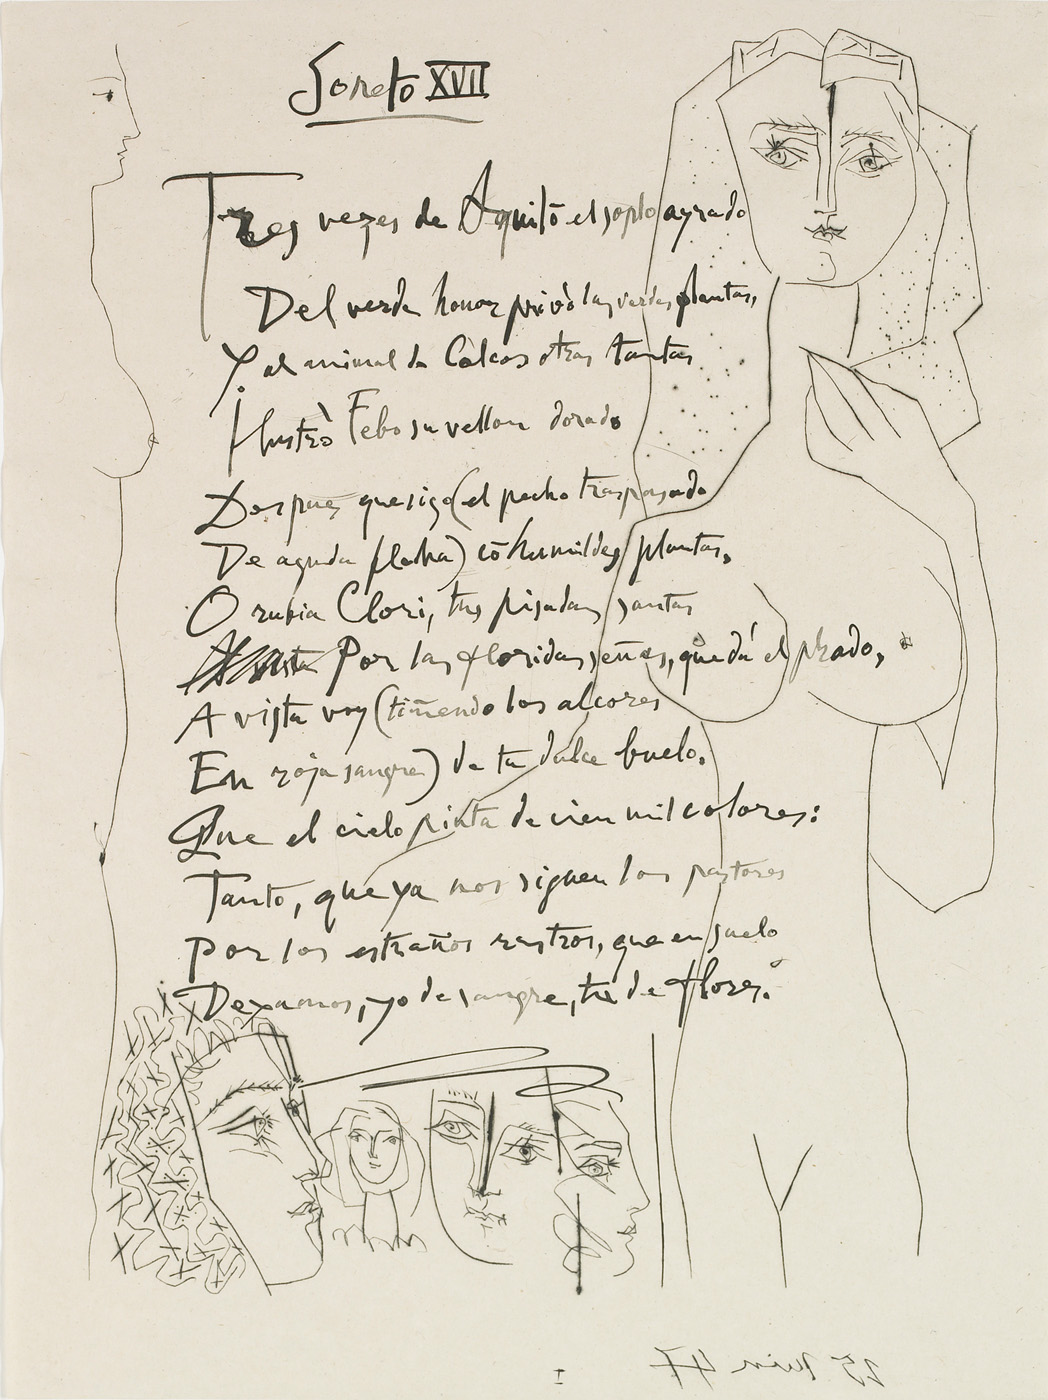 Soneto XVII
Tres vezes de Aquilõ el soplo ayrado
Del verde honor privò las verdes plantas,
Y al animal de Colcos otras tantas
Ilustrò Febo su vellon dorado
Despues que sigo (el pecho traspasado
De aguda flecha) cõ humildes plantas,
O rubia Clori, tus pisadas santas
Por las floridas señas, que dá el prado,
A vista voy (tiñendo los alcores
En roja sangre) de tu dulce buelo.
Que el cielo pinta de cien mil colores:
Tanto, que ya nos siguen los pastores
Por los estraños rastros, que en suelo
Dexamos, yo de sangre, tu de flores.
25 Juin 47
I